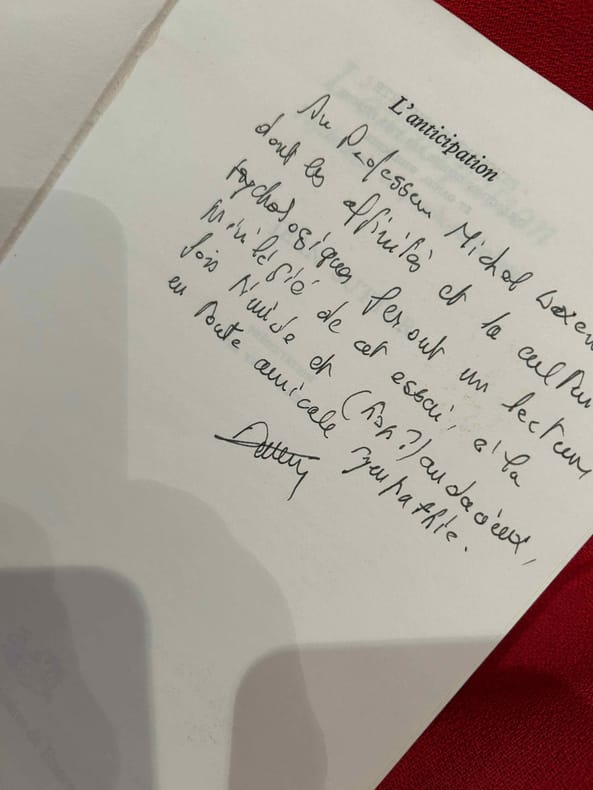 L'anticipation
Au Professeur Michel
dont les affinités et la culture
psychologiques feront un lecteur
privilégié de cet essai, à la
fois timide et (trop?) audacieux,
en toute amicale sympathie.